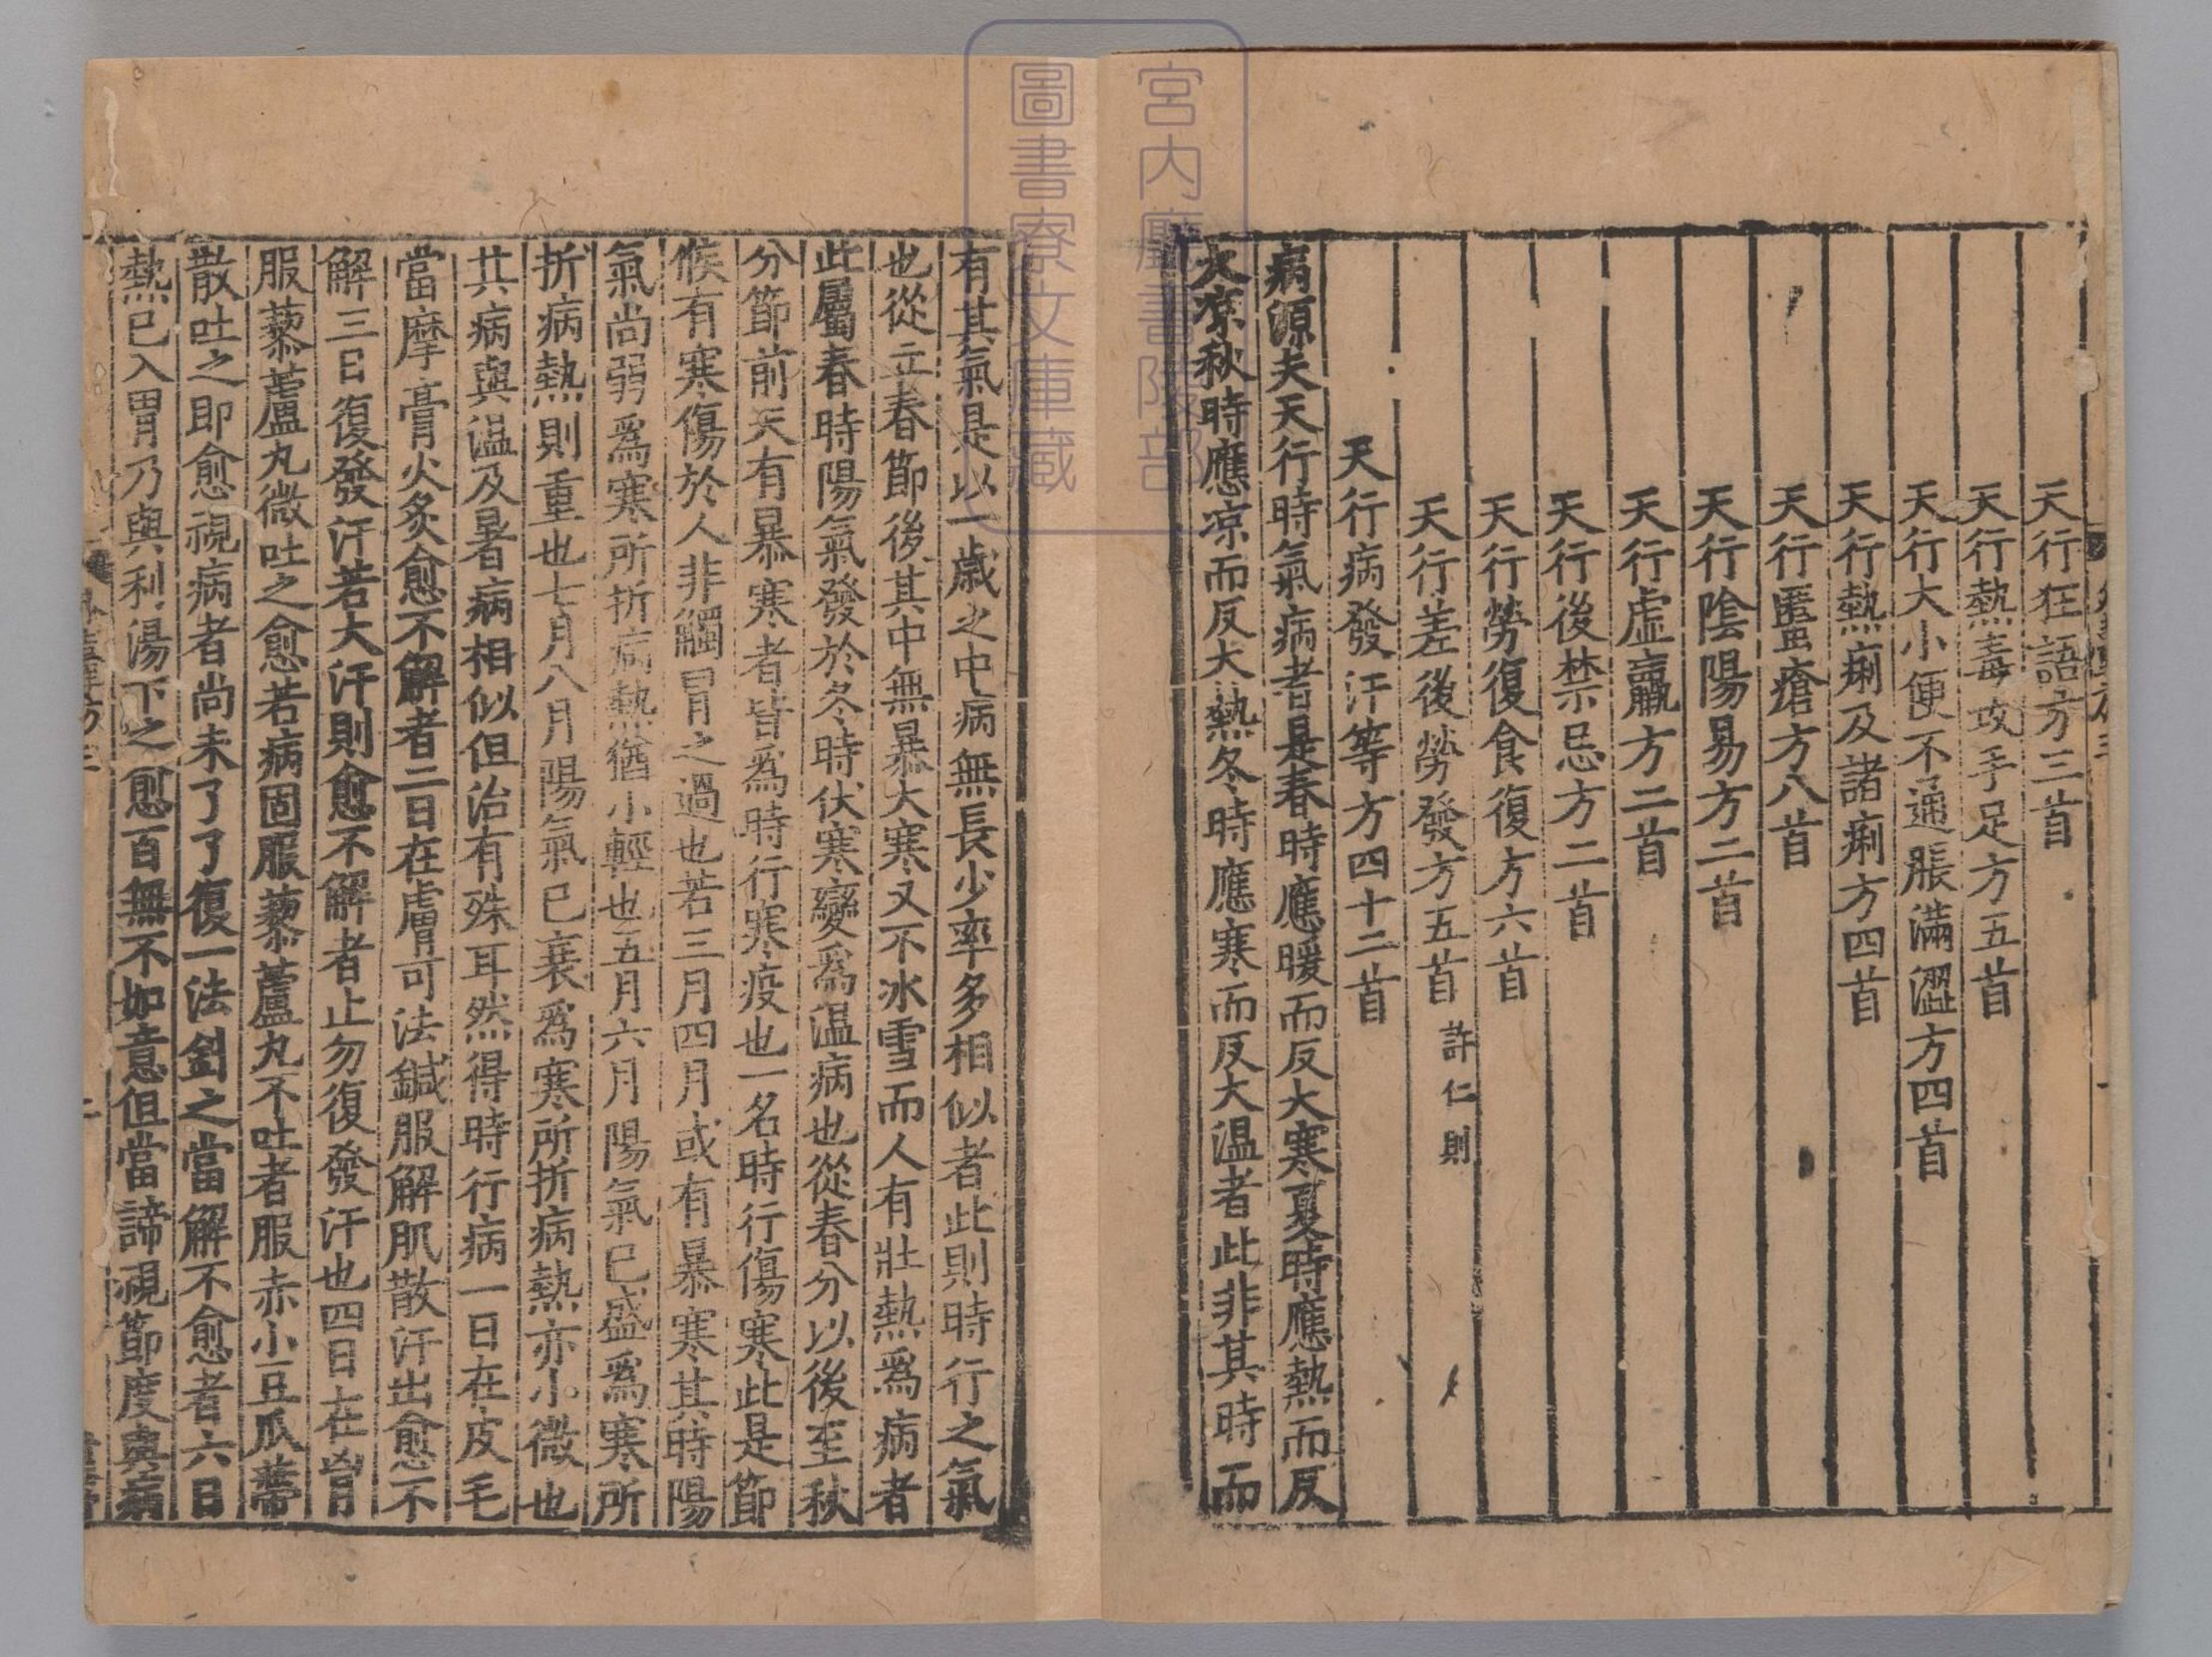 天行狂語方三首
天行熱毒攻手足方五首
天行大小便不通脹滿澀方四首
天行熱痢及諸痢方四首
天行䘌瘡方八首
天行陰陽易方二首
天行虛羸方二首
天行後禁忌方二首
天行勞復食復方六首
天行差後勞發方五首 許仁則
天行病發汗等方四十二首
病源夫天行時氣病者是春時應暖而反大寒夏時應熱而反
大凉秋時應凉而反大熱冬時應寒而反大温者此非其時而
有其氣是以一歲之中病無長少率多相似者此則時行之氣
也從立春節後其中無暴大寒又不冰雪而人有壯熱爲病者
此屬春時陽氣發於冬時伏寒變爲温病也從春分以後至秋
分節前天有暴寒者皆爲時行寒疫也一名時行傷寒此是節
候有寒傷於人非觸冒之過也若三月四月或有暴寒其時陽
氣尚弱爲寒所折病熱猶小輕也五月六月陽氣已盛爲寒所
折病熱則重也七月八月陽氣已衰爲寒所折病熱亦小微也
其病與温及暑病相似但治有殊耳然得時行病一日在皮毛
當摩膏火灸愈不解者二日在膚可法鍼服解肌散汗出愈不
解三日復發汗若大汗則愈不解者止勿復發汗也四日在胷
服藜蘆丸微吐之愈若病固服藜蘆丸不吐者服赤小豆瓜蔕
散吐之即愈視病者尚未了了復一法劍之當解不愈者六日
熱已入胃乃與利湯下之愈百無不如意但當諦視節度與病
宮内廳書陵部
圖書寮文庫藏